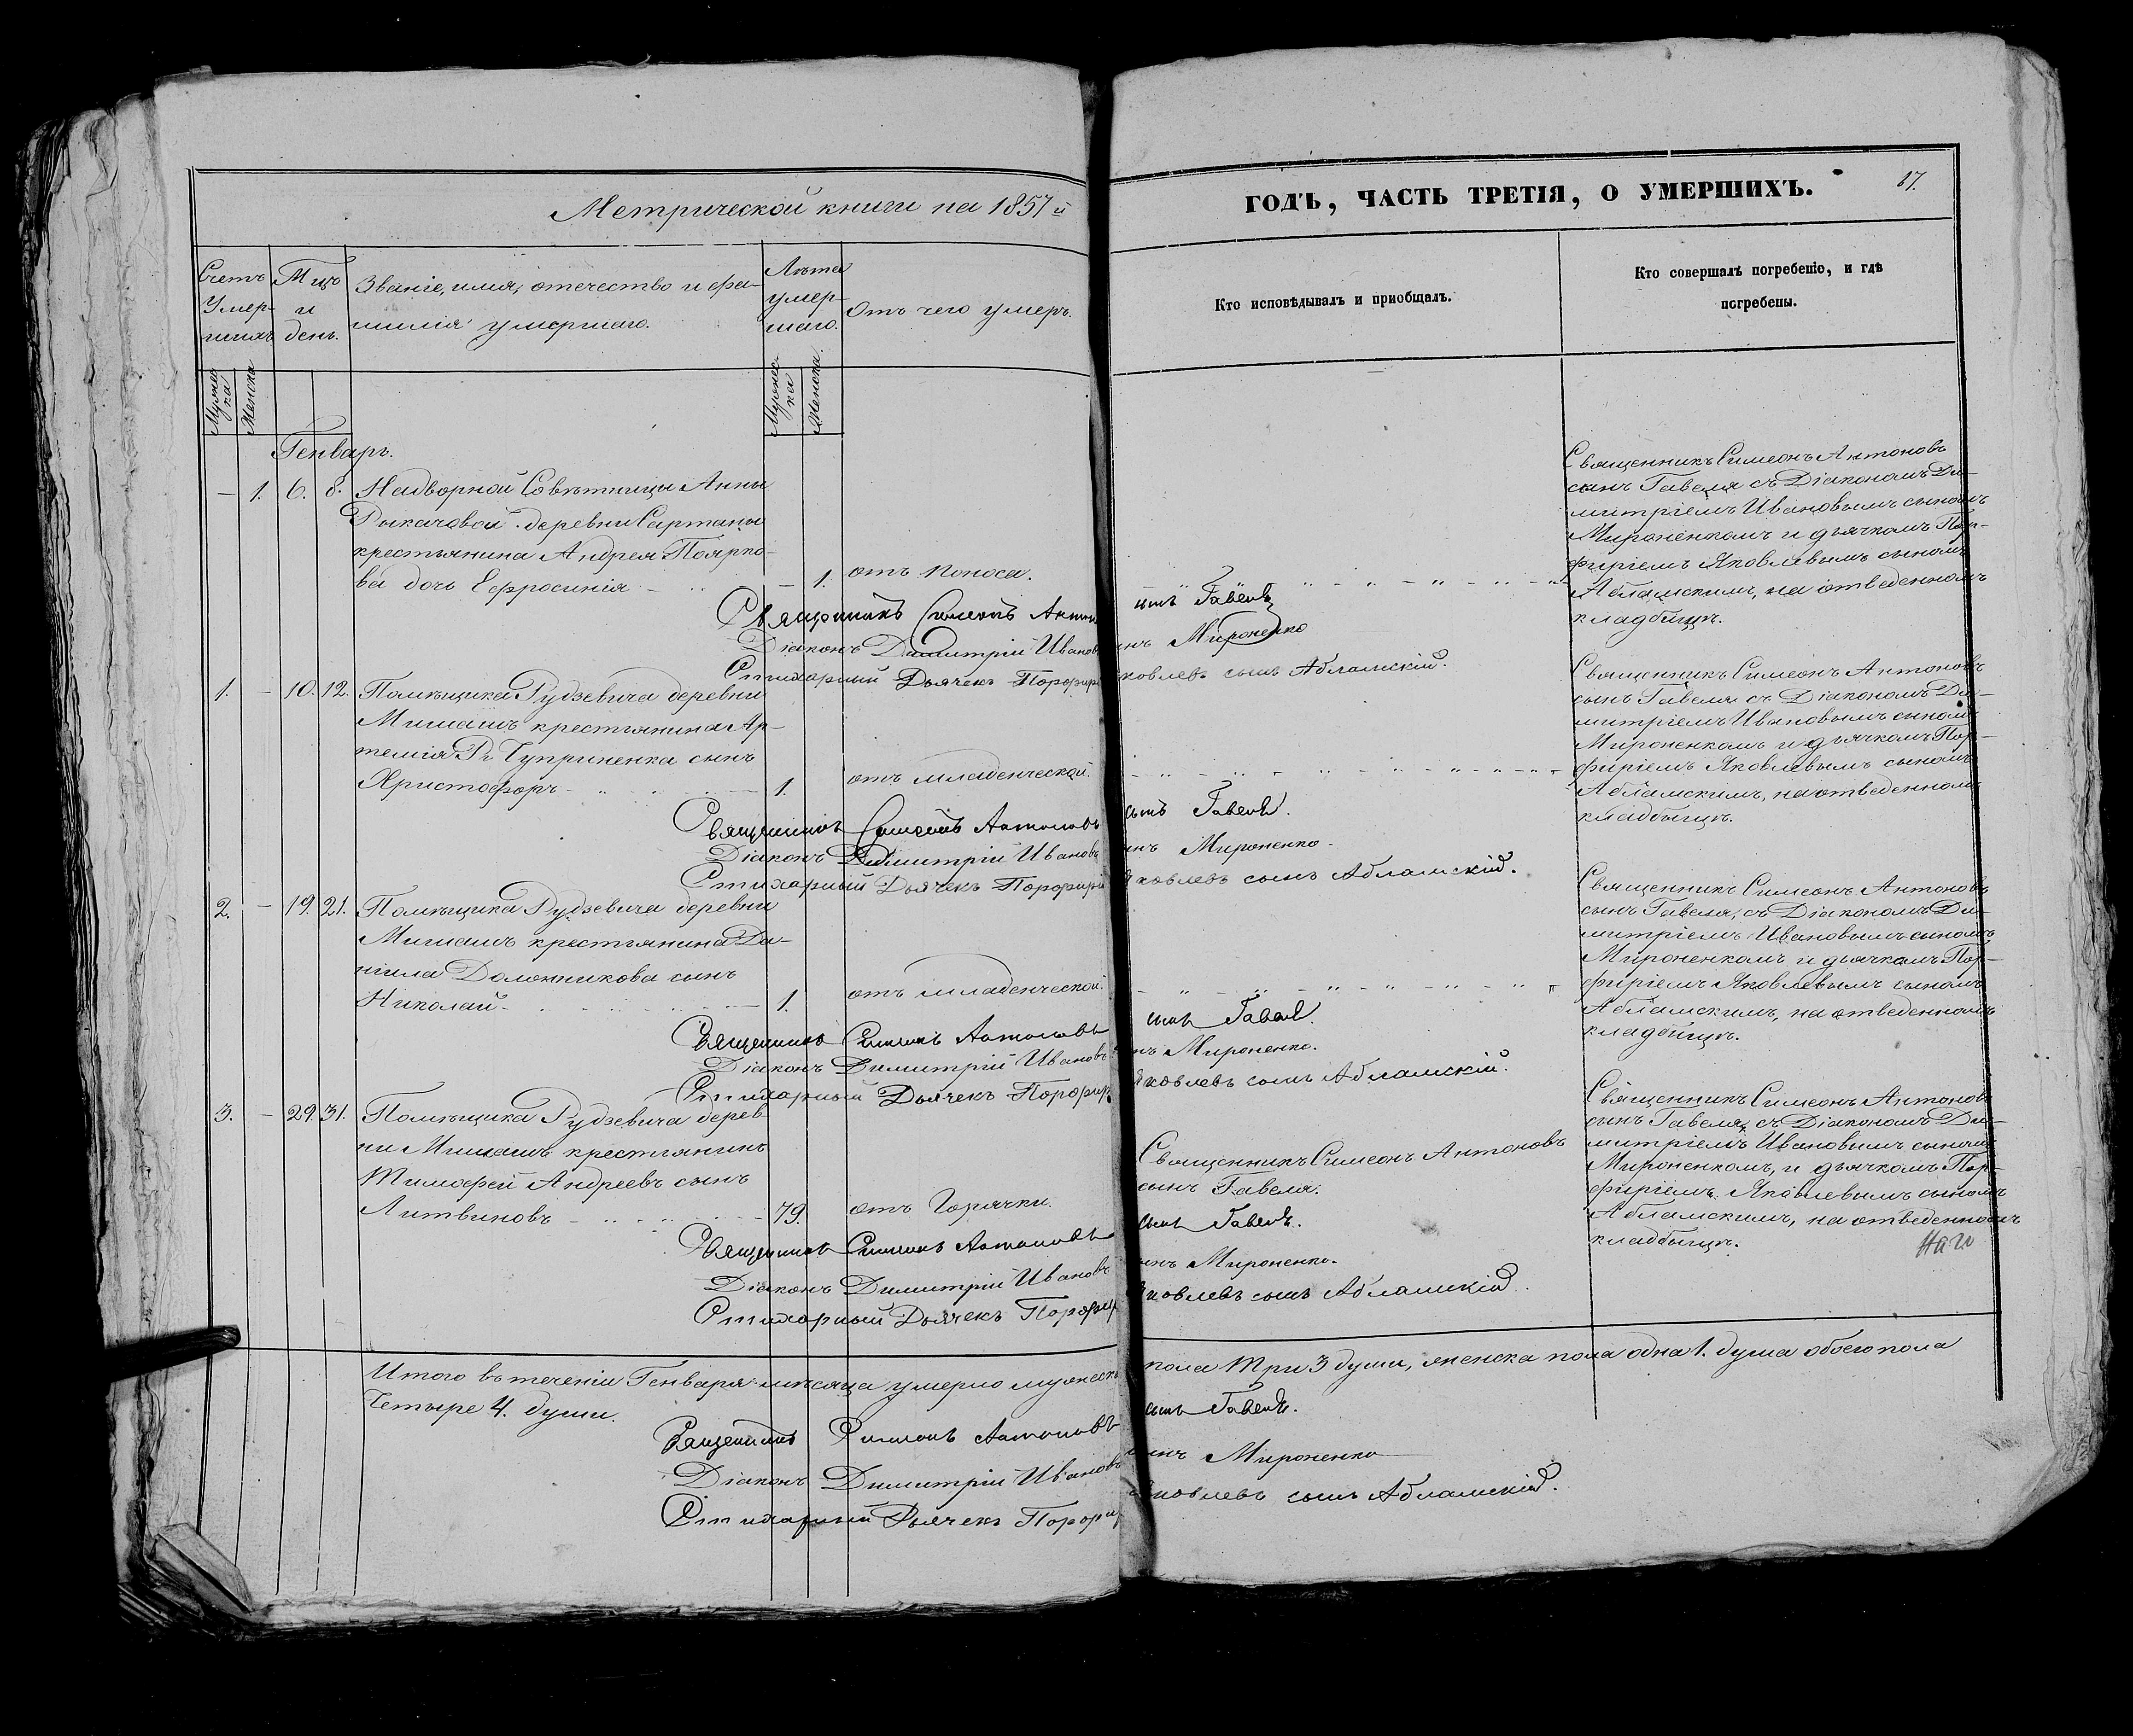 Метрической книги на 1857й
ГОДЪ, ЧАСТЬ ТРЕТІЯ, О УМЕРШИХЪ.
87.
Счетъ Умер-шихъ
Мцъ и день.
Званіе, имя, отечество и фа-
милія умершаго.
Лѣта умер-шаго.
Отъ чего умеръ.
Кто исповѣдывалъ и приобщалъ.
Кто совершалъ погребеніо, и гдѣ
погребены.
Мужес-ка
Женска
Мужес-ка
Женска.
Генварь.
– 1. 6. 8. Надворной Совѣтницы Анны
Рыкачовой деревни Сартаны
крестьянина Андрея Поярко-
ва дочь Ефросинія – 1. отъ поноса.
Священникъ Симеонъ Антоновъ
сынъ Гавеля съ Діакономъ Ди-
митріемъ Ивановымъ сыномъ
Мироненкомъ и дьячкомъ Пор-
фиріемъ Яковлевымъ сыномъ
Абламскимъ, на отведенномъ
кладбищѣ.
Священникъ Симеонъ Антон сынъ Гавеля
Діаконъ Димитрій Иванов инъ Мироненко
Стихарный Дьячекъ Порфири Яковлевъ сынъ Абламскій.
1. – 10. 12. Помѣщика Рудзевича деревни
Мишашъ крестьянина Ар-
темія Чуприненка сынъ
Христофоръ – 1. отъ младенческой.
Священникъ Симеонъ Антоновъ
сынъ Гавеля съ Діакономъ Ди-
митріемъ Ивановымъ сыномъ
Мироненкомъ и дьячкомъ Пор-
фиріемъ Яковлевымъ сыномъ
Абламскимъ, на отведенномъ
кладбищѣ.
Священникъ Симеонъ Антоновъ сынъ Гавеля.
Діаконъ Димитрій Ивановъ инъ Мироненко.
Стихарный Дьячекъ Порфирій Яковлевъ сынъ Абламскій.
2. – 19. 21. Помѣщика Рудзевича деревни
Мишашъ крестьянина Да-
ніила Доложникова сынъ
Николай – 1. отъ младенческой.
Священникъ Симеонъ Антоновъ
сынъ Гавеля, съ Діакономъ Ди-
митріемъ Ивановымъ сыномъ
Мироненкомъ и дьячкомъ Пор-
фиріемъ Яковлевымъ сыномъ
Абламскимъ, на отведенномъ
кладбищѣ.
Священникъ Симеонъ Антоновъ сынъ Гавеля.
Діаконъ Димитрій Ивановъ инъ Мироненко.
Стихарный Дьячекъ Порфир Яковлевъ сынъ Абламскій.
3. – 29. 31. Помѣщика Рудзевича дерев
ни Мишашъ крестьянинъ
Тимофей Андреевъ сынъ
Литвиновъ – 79. отъ Горячки.
Священникъ Симеонъ Антоновъ
сынъ Гавеля.
Священникъ Симеонъ Антоновъ
сынъ Гавеля, съ Діакономъ Ди-
митріемъ Ивановымъ сыномъ
Мироненкомъ, и дьячкомъ Пор-
фиріемъ Яковлевымъ сыномъ
Абламскимъ, на отведенномъ
кладбищѣ.
Священникъ Симеонъ Антоновъ сынъ Гавеля.
Діаконъ Димитрій Ивановъ инъ Мироненко.
Стихарный Дьячекъ Порфир Яковлевъ сынъ Абламскій.
Итого въ теченіи Генваря мѣсяца умерло мужеска пола три 3 души, женска пола одна 1. душа обоего пола
Четыре 4. души.
Священникъ Симеонъ Антоновъ сынъ Гавеля.
Діаконъ Димитрій Ивановъ сынъ Мироненко
Стихарный Дьячекъ Порфир Яковлевъ сынъ Абламскій.